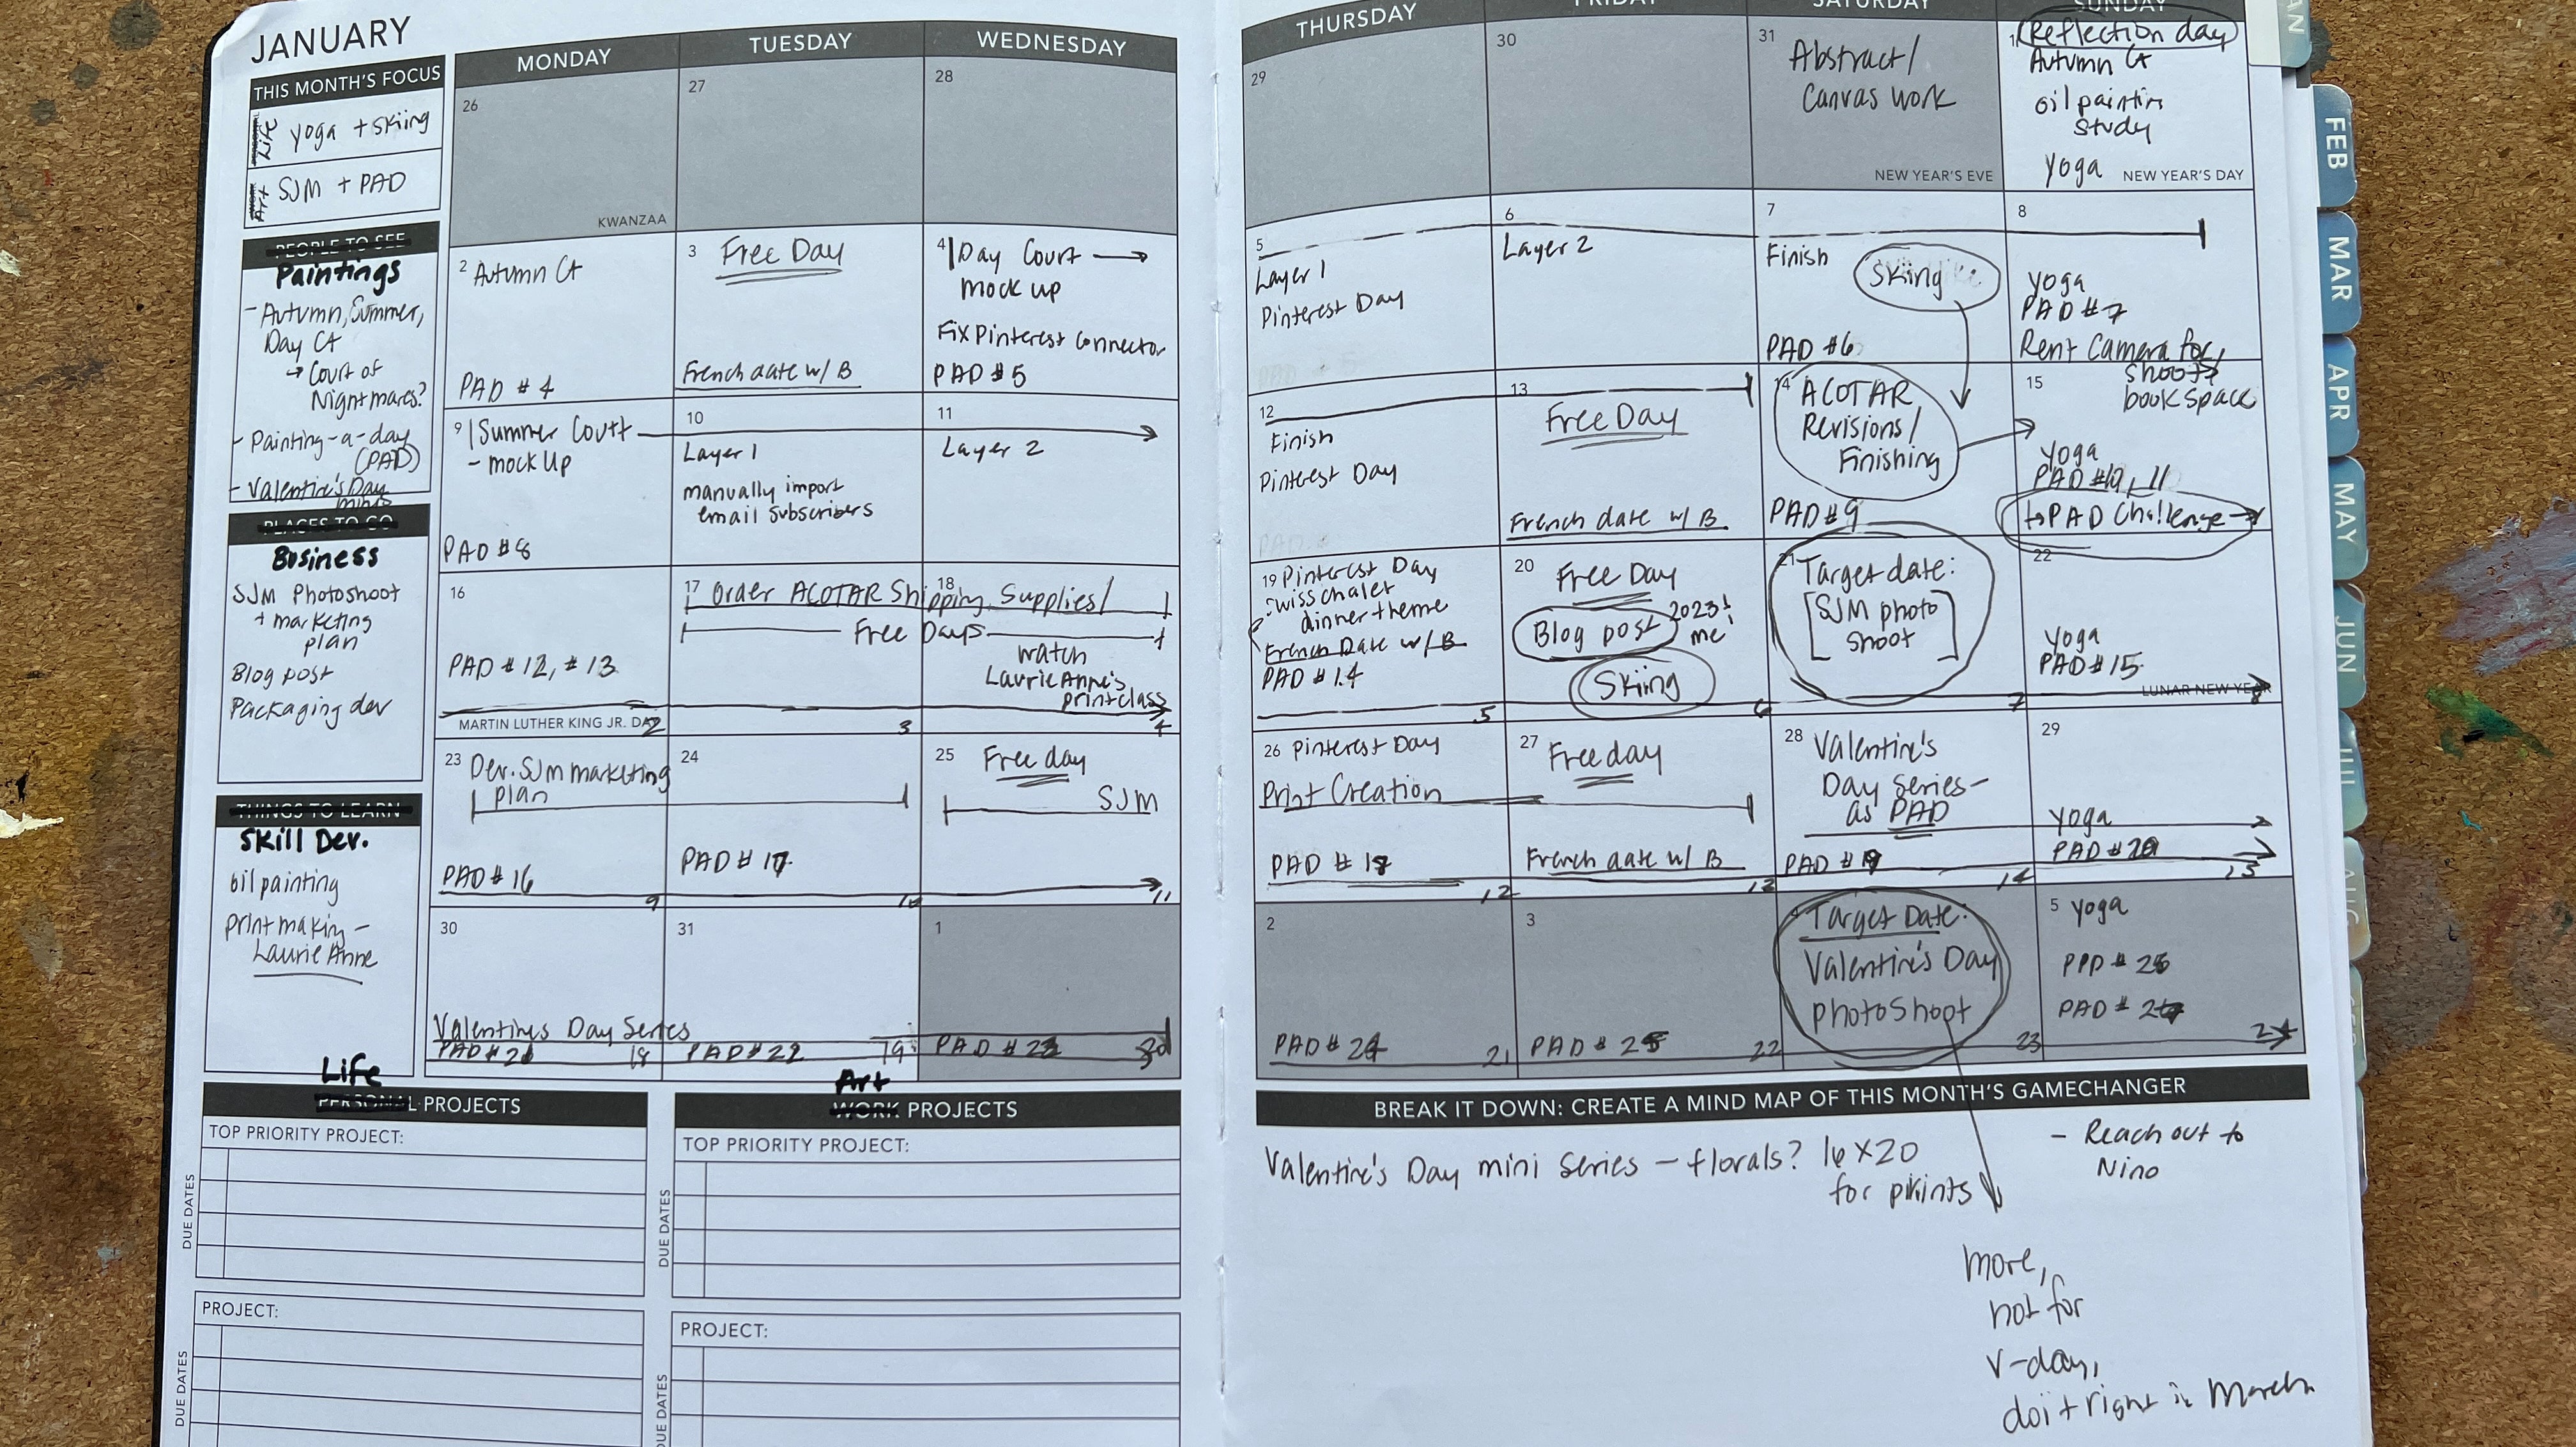 JANUARY
THIS MONTH'S FOCUS
Life
yoga + skiing
Art
SJM + PAD
PEOPLE TO SEE
Paintings
- Autumn, Summer,
Day Ct
→ Court of
Nightmares?
- Painting-a-day
(PAD)
- Valentine's Day
minis
PLACES TO GO
Business
SJM Photoshoot
+ marketing
plan
Blog post
Packaging dev
THINGS TO LEARN
Skill Dev.
oil painting
print making -
Laurie Anne
MONDAY
TUESDAY
WEDNESDAY
26
KWANZAA
27
28
2 Autumn Ct
PAD #4
3 Free Day
French date w/ B
4 Day Court →
mock up
Fix Pinterest Connector
PAD #5
9 Summer Court
- mock up
PAD #8
10
Layer 1
manually import
email subscribers
11
Layer 2
16
PAD #12, #13
MARTIN LUTHER KING JR. DAY
2
17 Order ACOTAR Shipping Supplies/
18
Free Days
watch
Laurie Anne's
print class
3
4
23 Dev. SJM marketing
plan
PAD #16
9
24
PAD #17
10
25 Free day
SJM
11
30
Valentines Day Series
PAD #21
18
31
PAD #22
19
1
PAD #23
20
THURSDAY
FRIDAY
SATURDAY
SUNDAY
29
30
31
Abstract/
Canvas work
NEW YEAR'S EVE
1 Reflection day
Autumn Ct
oil paintin
study
yoga
NEW YEAR'S DAY
5
Layer 1
Pinterest Day
6
Layer 2
7
Finish
Skiing
PAD #6
8
yoga
PAD #7
Rent Camera for
shoot
book space
12
Finish
Pinterest Day
13
Free Day
French date w/ B
14 ACOTAR
Revisions/
Finishing
PAD #9
15
yoga
PAD #10, 11
PAD Challenge →
19 Pinterest Day
Swiss chalet
dinner theme
French Date w/ B
PAD #14
5
20 Free Day
Blog post 2023!
me!
Skiing
6
21 Target date:
[SJM photo
shoot]
7
22
yoga
PAD #15
LUNAR NEW YEAR
8
26 Pinterest Day
Print Creation
PAD #18
12
27 Free day
French date w/ B
13
28 Valentine's
Day Series-
as PAD
PAD #19
14
29
yoga
PAD #20
15
2
PAD #24
21
3
PAD #25
22
4 Target Date:
Valentine's Day
photoshoot
23
5 yoga
24
Life
PERSONAL PROJECTS
TOP PRIORITY PROJECT:
DUE DATES
PROJECT:
DUE DATES
Art
WORK PROJECTS
TOP PRIORITY PROJECT:
DUE DATES
PROJECT:
DUE DATES
BREAK IT DOWN: CREATE A MIND MAP OF THIS MONTH'S GAMECHANGER
Valentine's Day mini series - florals? 16 x 20
for prints
- Reach out to
Nino
more,
not for
v-day,
do it right in March
JAN
FEB
MAR
APR
MAY
JUN
JUL
AUG